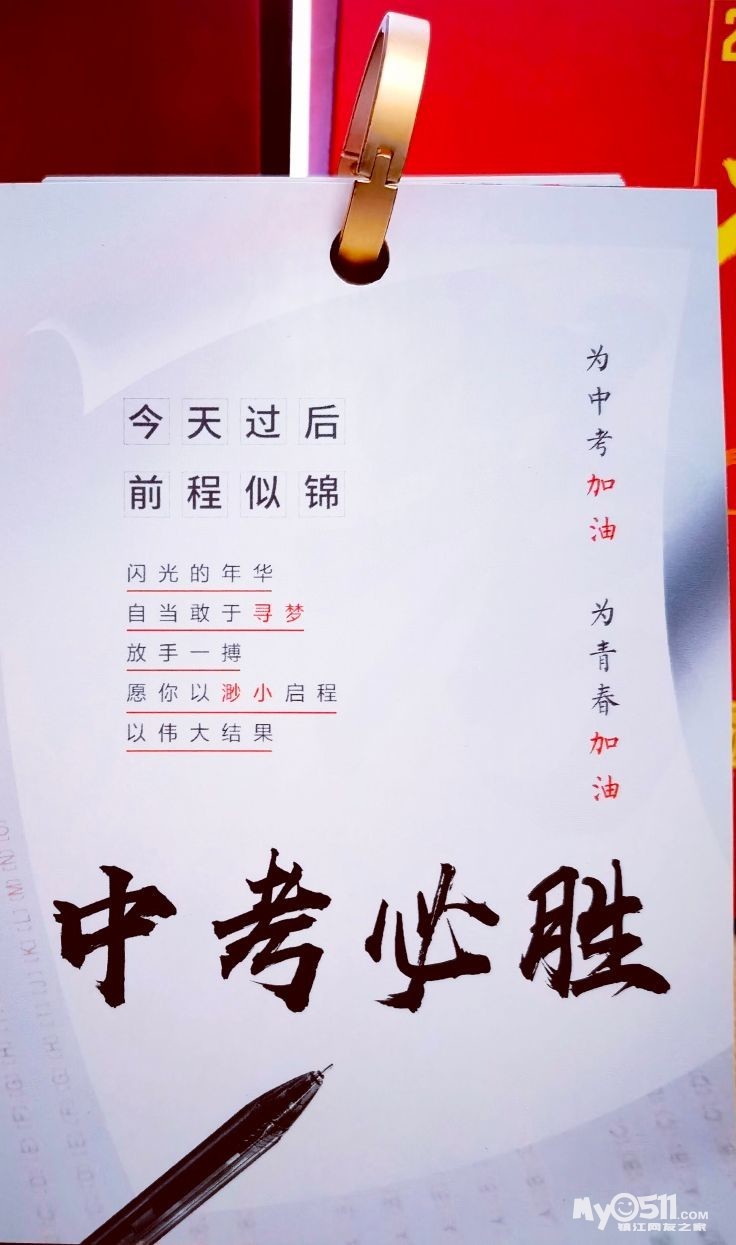 今天过后
前程似锦
闪光的年华
自当敢于寻梦
放手一搏
愿你以渺小启程
以伟大结果
为中考加油
为青春加油
中考必胜
My0511.COM
镇江网友之家